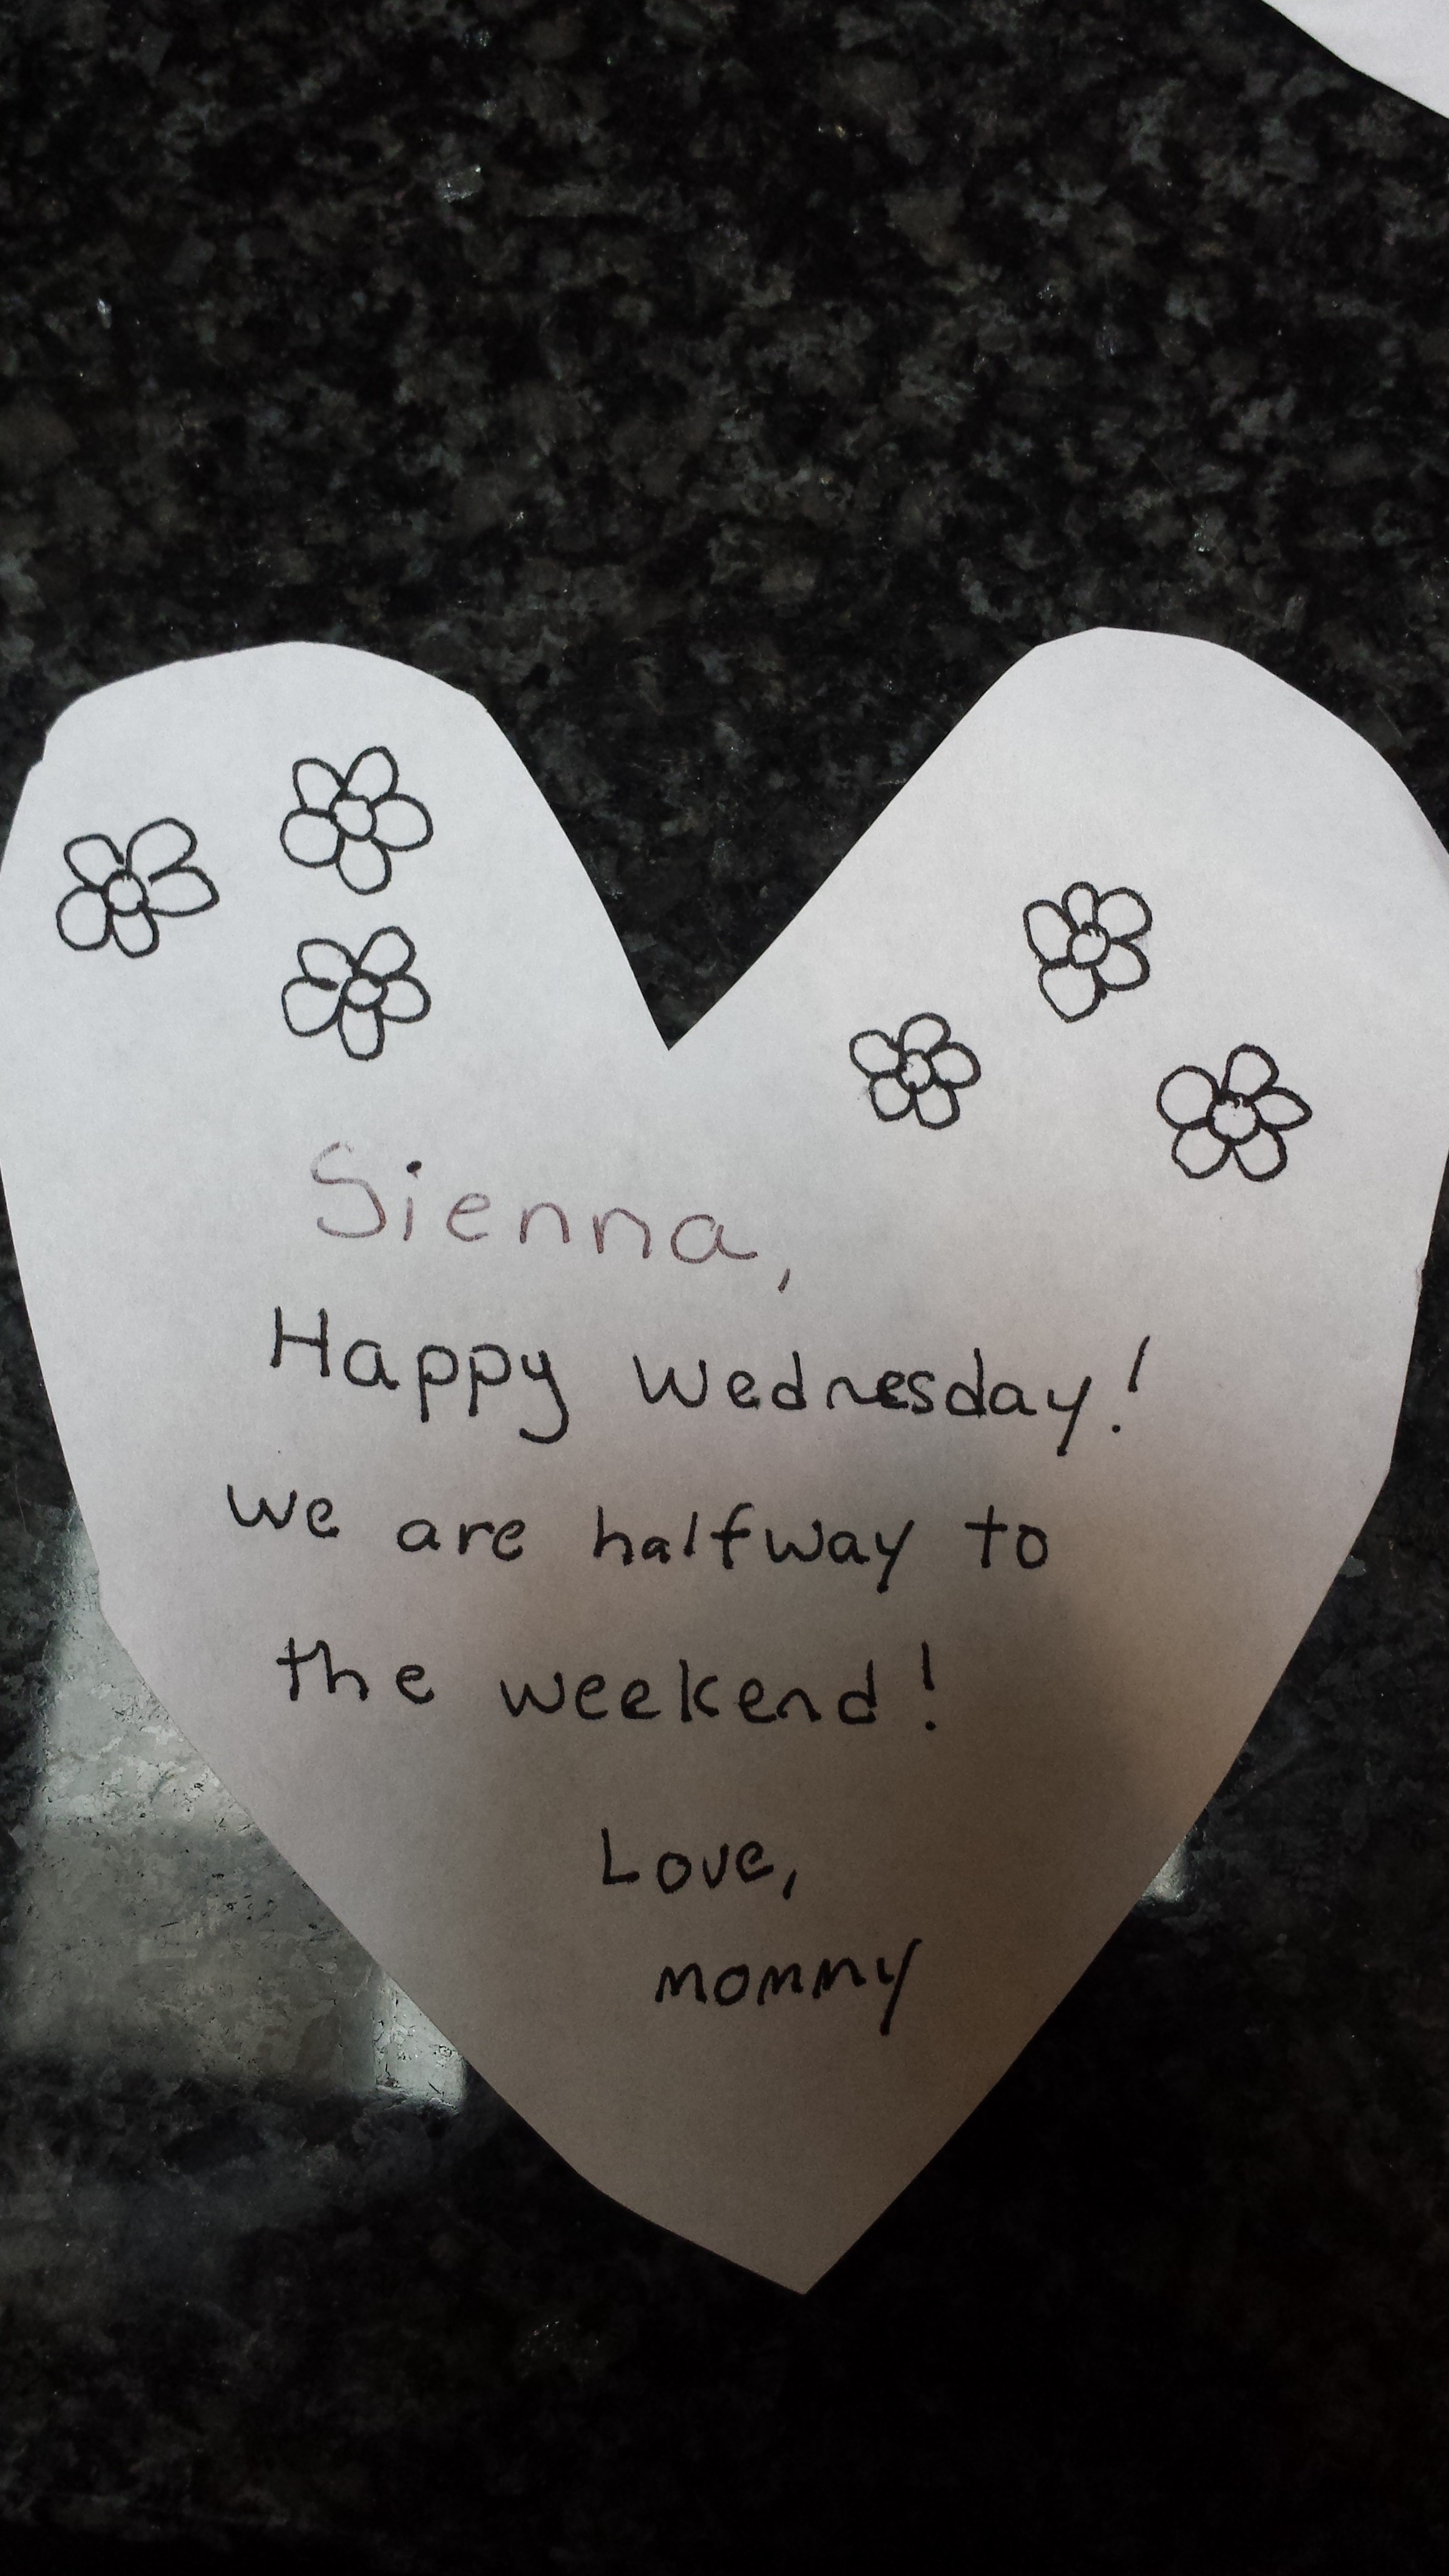 Sienna,
Happy Wednesday!
We are halfway to
the weekend!
Love,
mommy